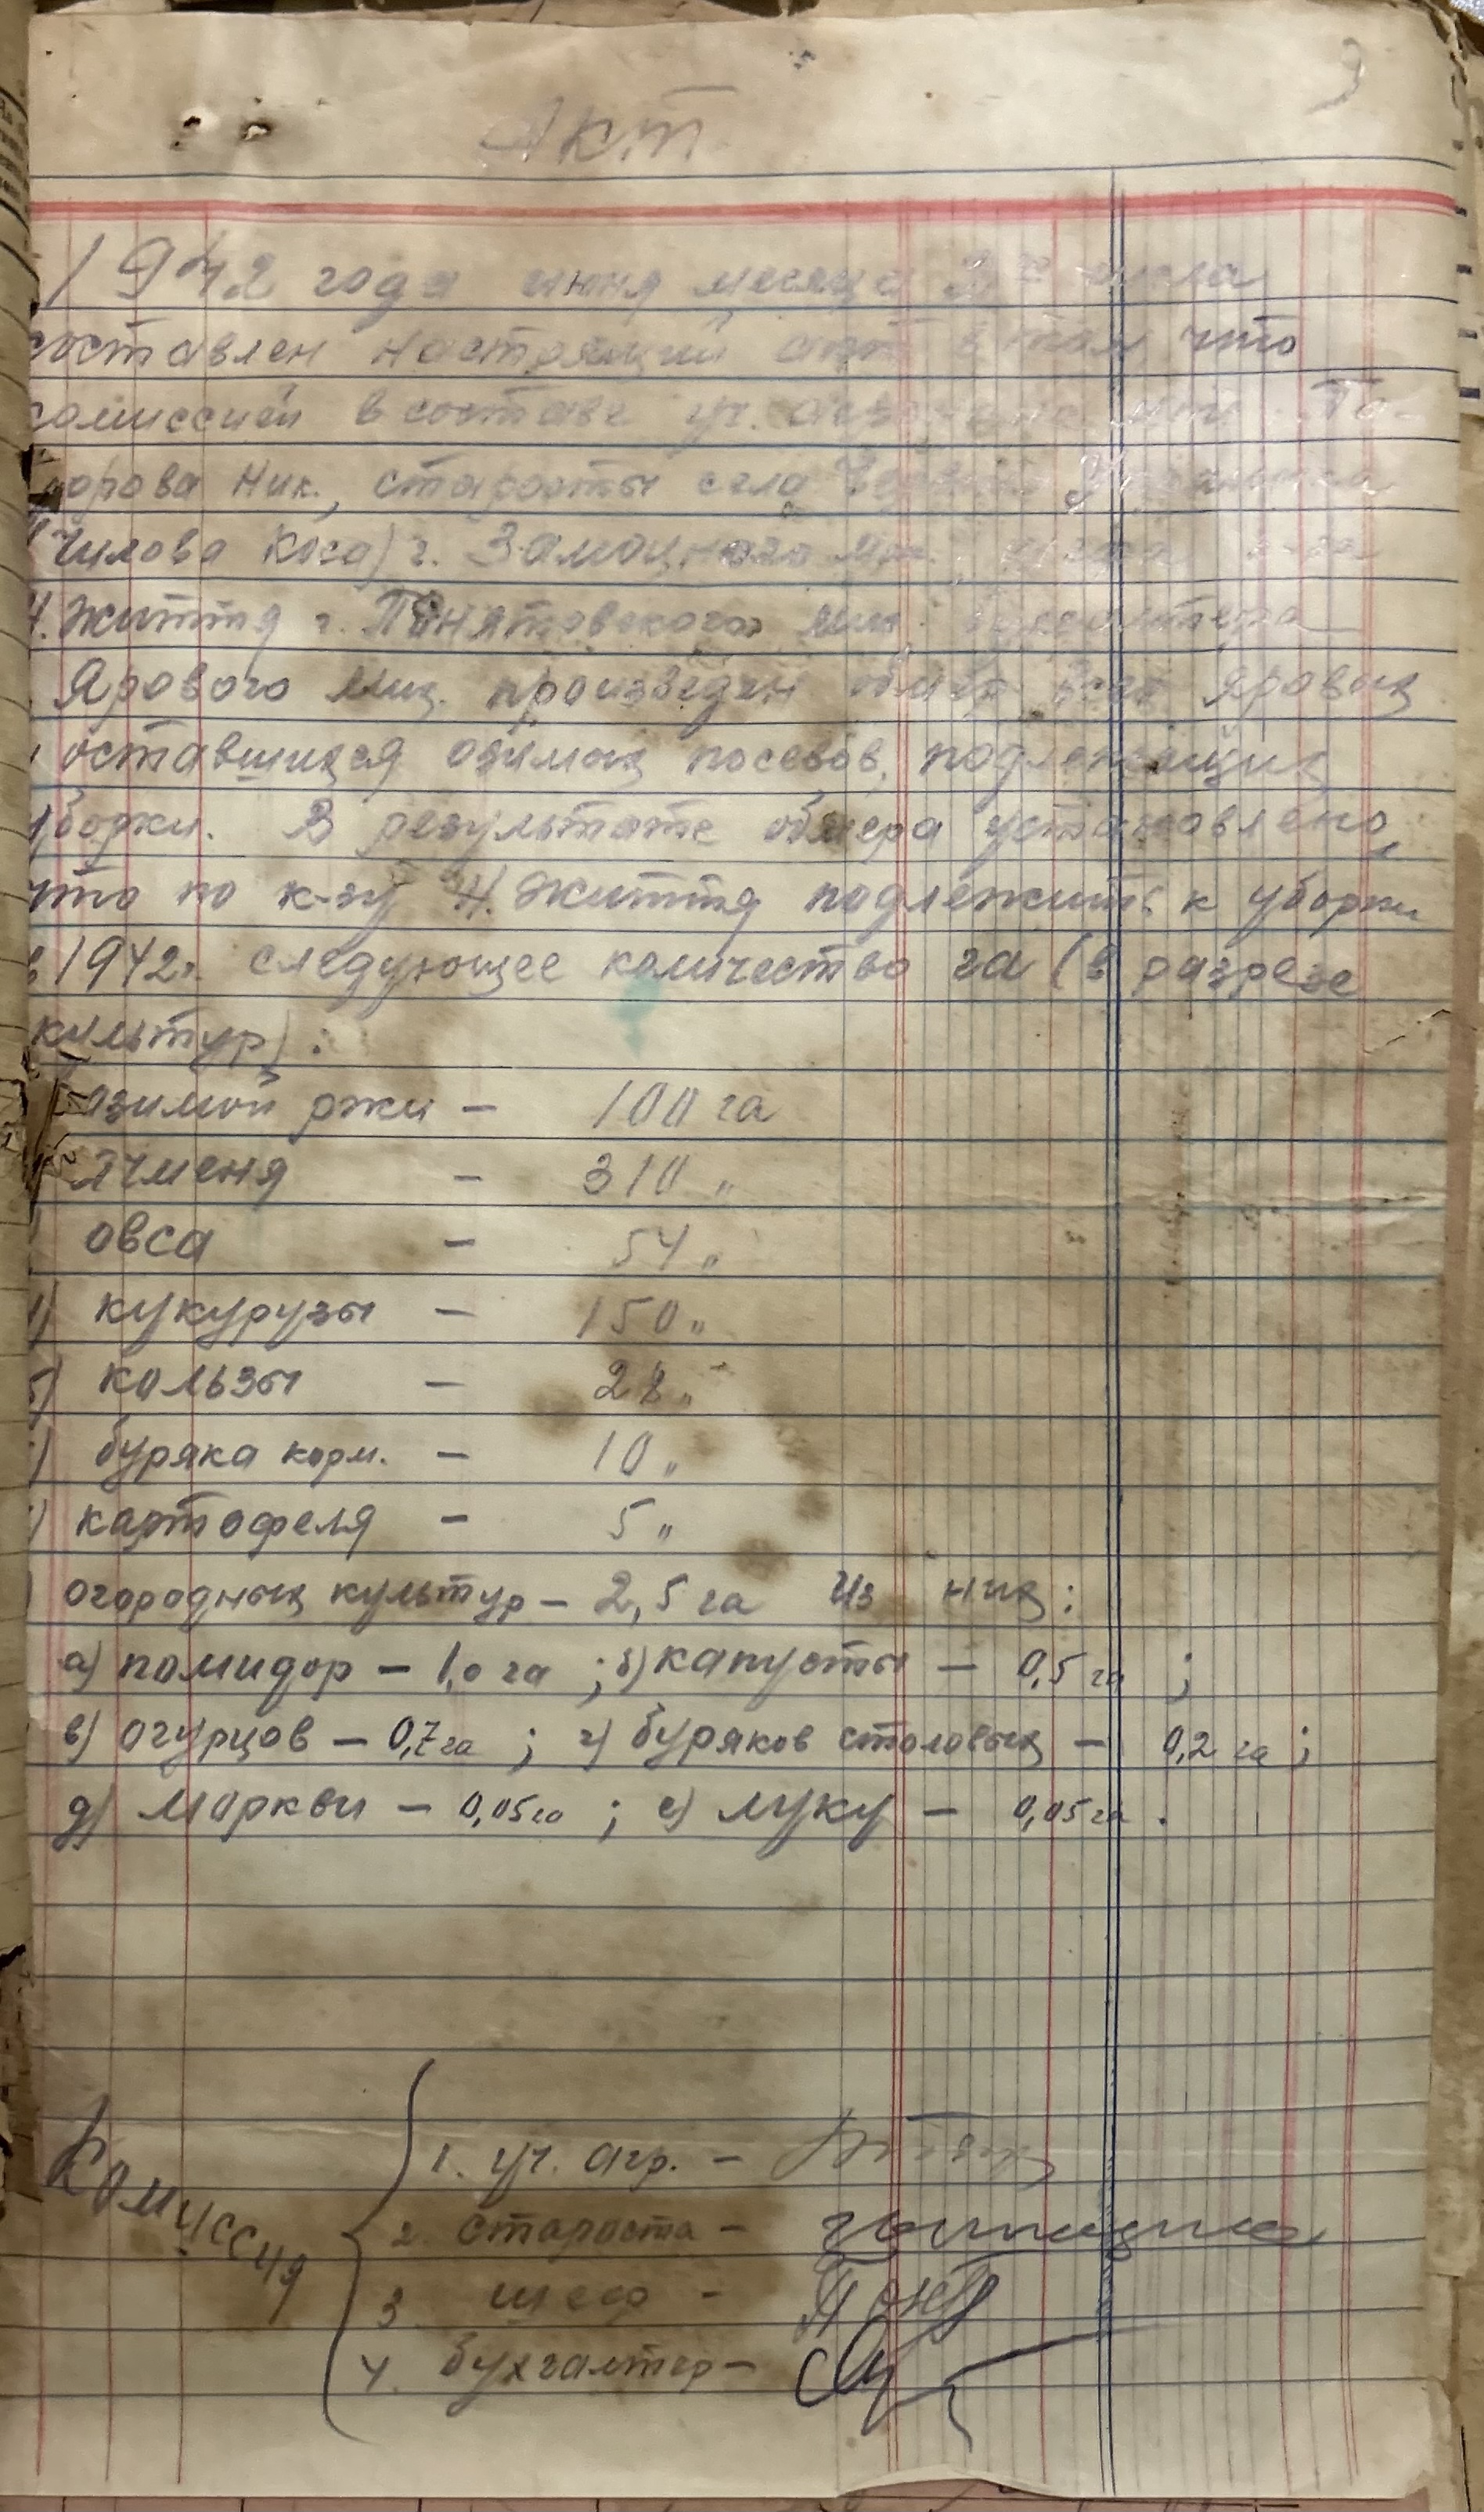 Акт
1942 года июня месяца 2го числа
составлен настоящий акт в том что
комиссией в составе уч. агронома
Ник., старосты села
Чилова Коса) г. Замоцного
Н. Життя г. Понятовского Мих. бухгалтера
Ярового Мих. произведен обмер всех яровых
оставшихся озимых посевов, подлежащих
уборки. В результате обмера установлено,
что по к-зу Н. Життя подлежить к уборки
в 1942г. следующее количество га (в разрезе
культур):
озимой ржи – 100 га
ячменя – 310 "
овса – 54 "
4) кукурузы – 150 "
5) кользы – 28 "
6) буряка корм. – 10 "
7) картофеля – 5 "
огородных культур – 2,5 га из них:
а) помидор – 1,0 га ; б) капусты – 0,5 га ;
в) огурцов – 0,7 га ; г) буряков столовых – 0,2 га ;
д) моркви – 0,05 га ; е) луку – 0,05 га .
Комиссия
1. уч. агр. –
2 староста –
3 шеф –
4. бухгалтер –